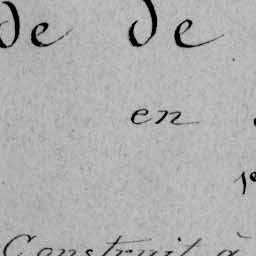 de de
en
1e
Construit à